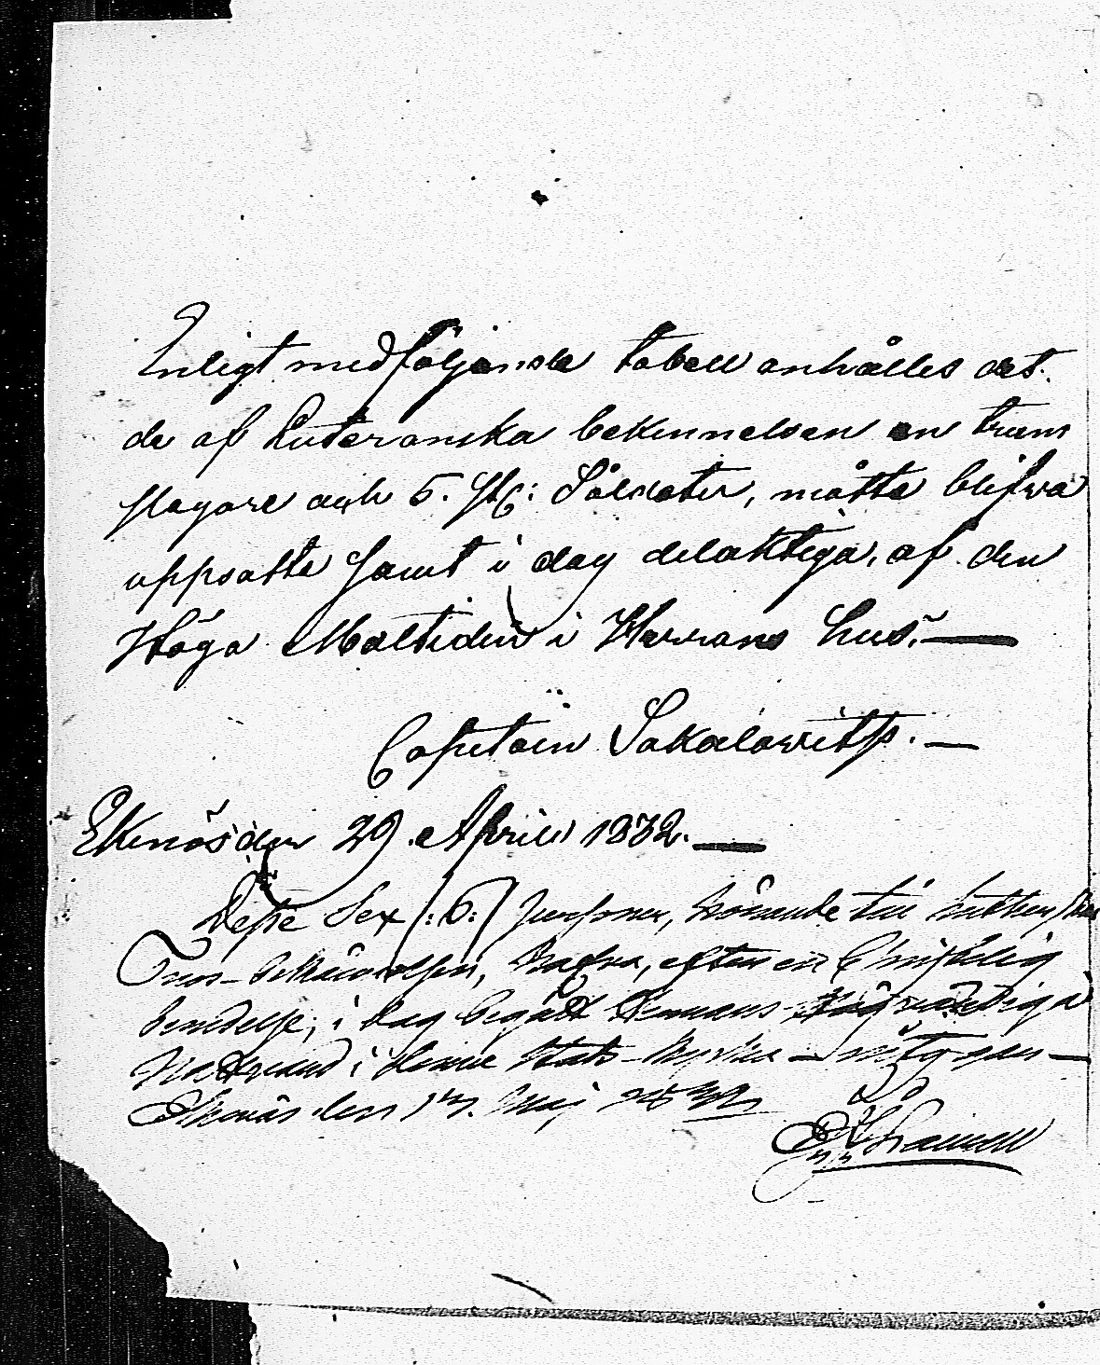 Enligt medföljande tabell anhålles det
de af Luteranska bekennelsen en trum
slagare och 5. st: Soldater, måtte blifwa
uppsatte samt i dag delaktiga af den
Höga Måltiden i Herrans hus.—
Capitain Sakalowitsh.—
Ekenäs den 29 April 1832.—
Desse Sex /:6:/ Personer, hörande till
Tros-bekännelsen, hafva, efter en Christelig
beredelse, i dag begått Herrans Högvärdiga
Nattvard i denne Stads-Kyrka
Ekenäs den 1 Maj